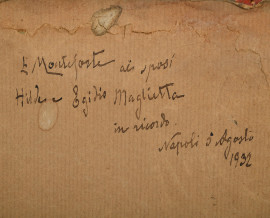 E. Monteforte ai sposi
Hilde e Egidio Maglietta
in ricordo.
Napoli 5 Agosto
1932